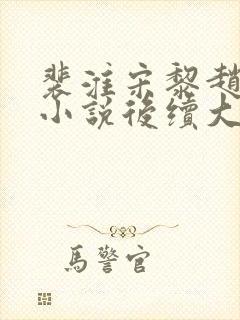 裴淮宋黎趙
小說後續大
馬警官